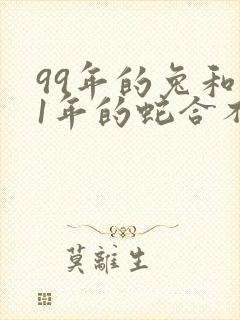 99年的兔和
1年的蛇合
莫離生